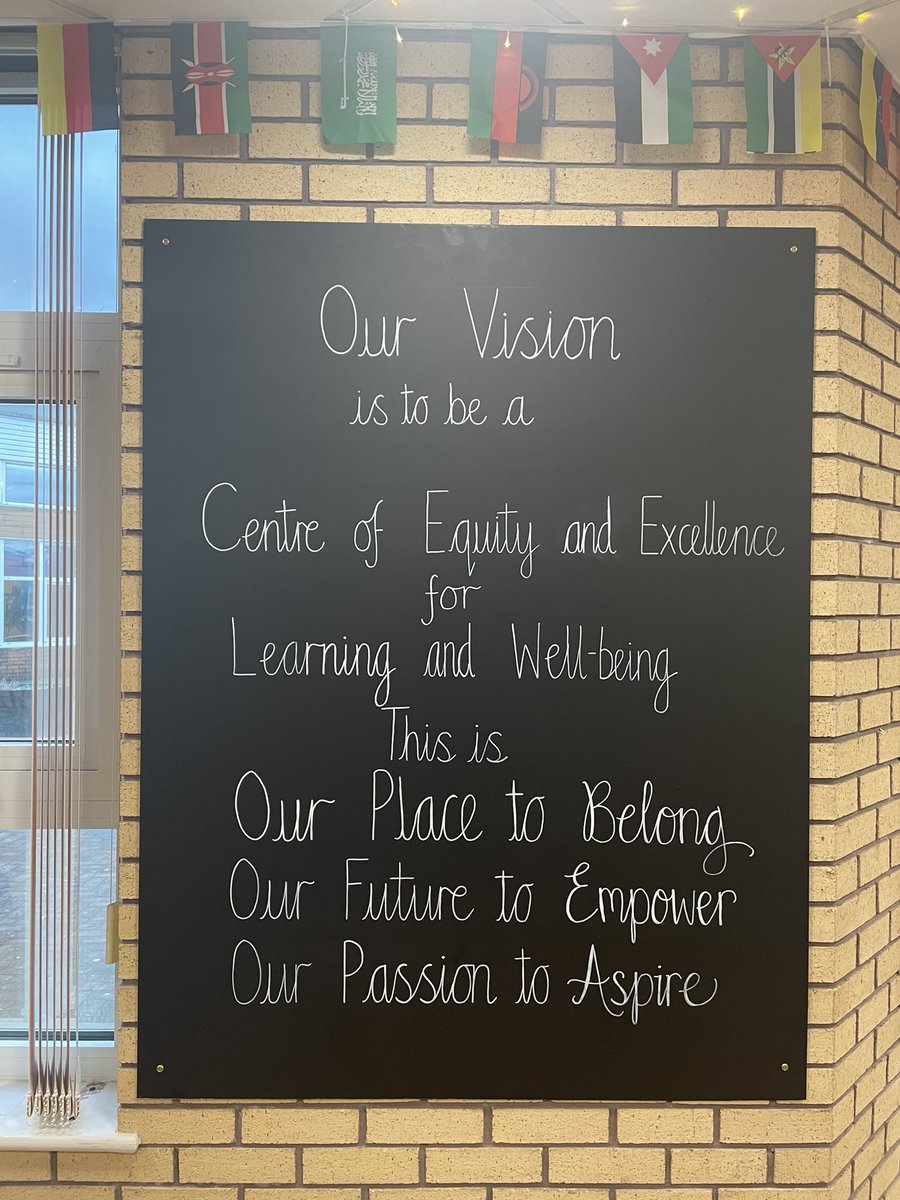 Our Vision
is to be a
Centre of Equity and Excellence
for
Learning and Well-being
This is
Our Place to Belong
Our Future to Empower
Our Passion to Aspire